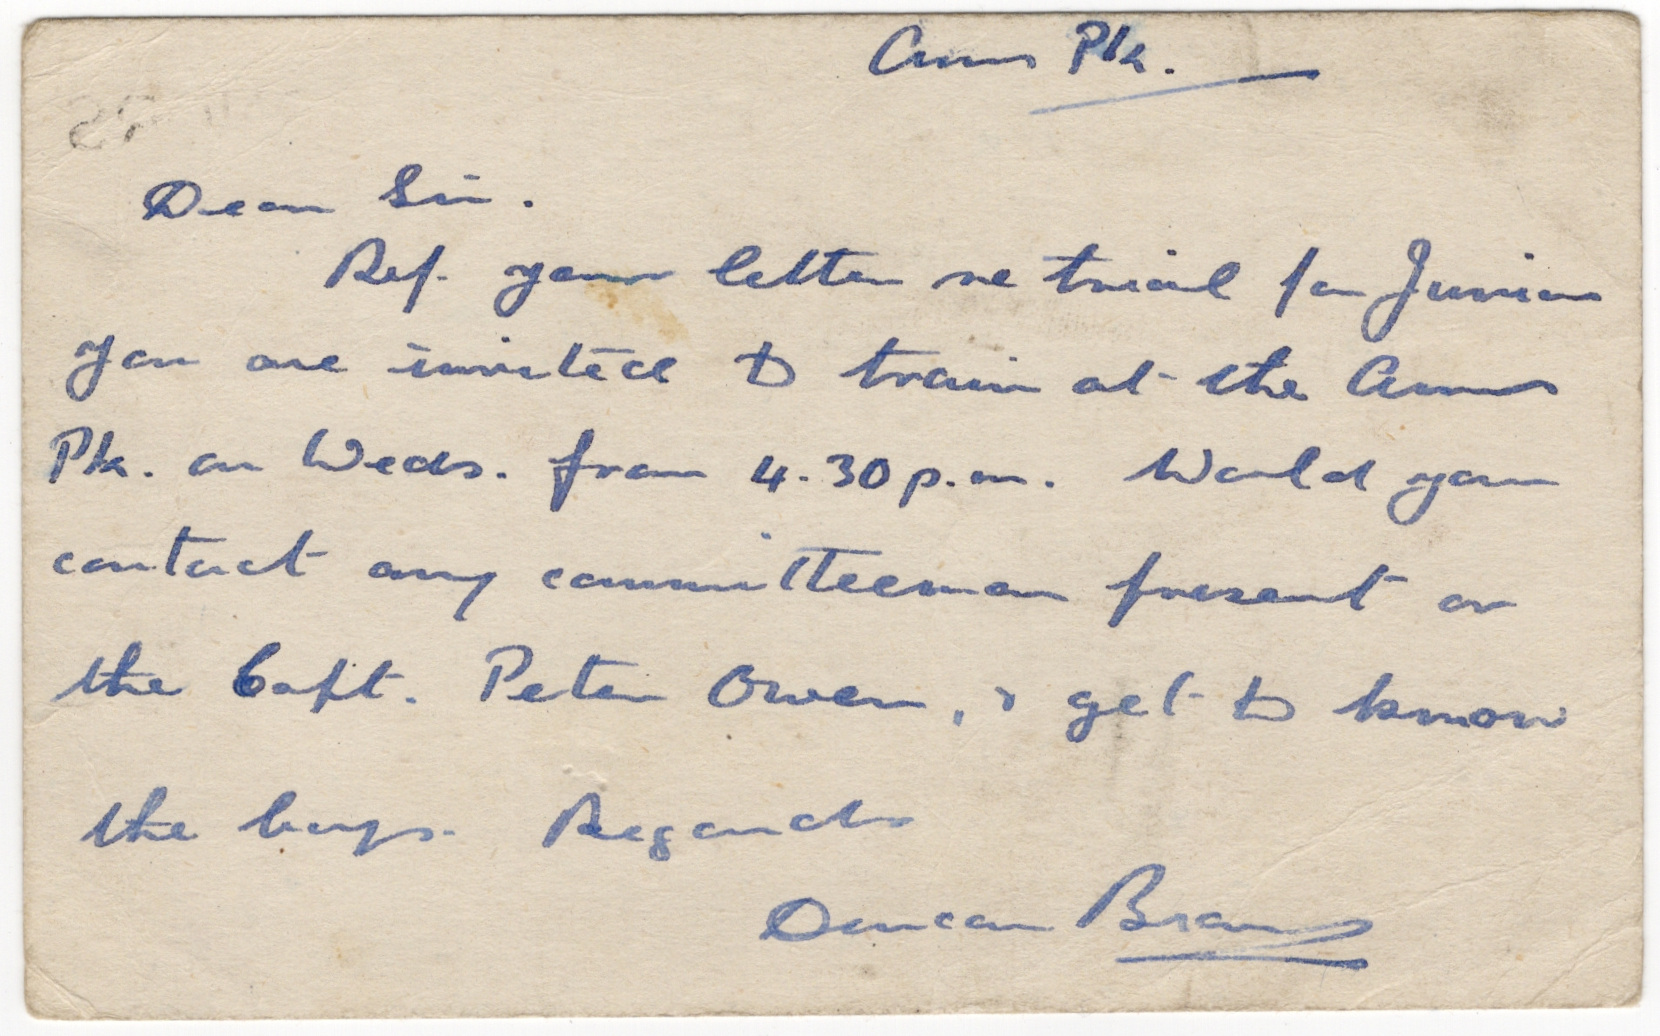 Arms Pk.
Dear Sir.
Ref. your letter re trial for Juniors
you are invited to train at the Arms
Pk. on Weds. from 4.30 p.m. Would you
contact any committeeman present or
the Capt. Peter Owen, & get to know
the boys. Regards
Duncan